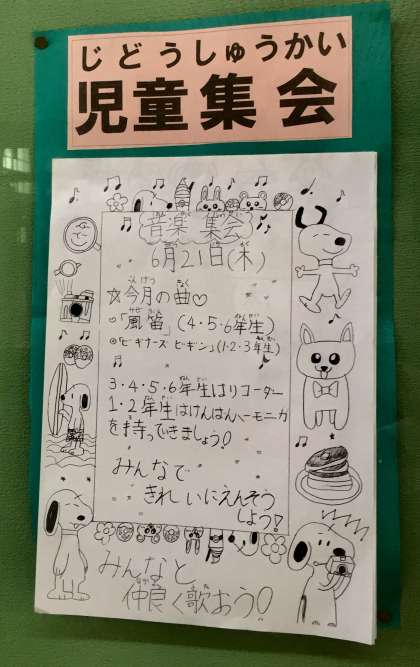 じどうしゅうかい
児童集会
音楽集会
6月21日(木)
☆今月の曲♡
◎「風笛」(4・5・6年生)
◎「ビギナーズ ビギン」(1・2・3年生)
3・4・5・6年生はリコーダー
1・2年生はけんばんハーモニカ
を持ってきましょう!
みんなで
きれいにえんそう
しよう!
みんなと
仲良く歌おう!